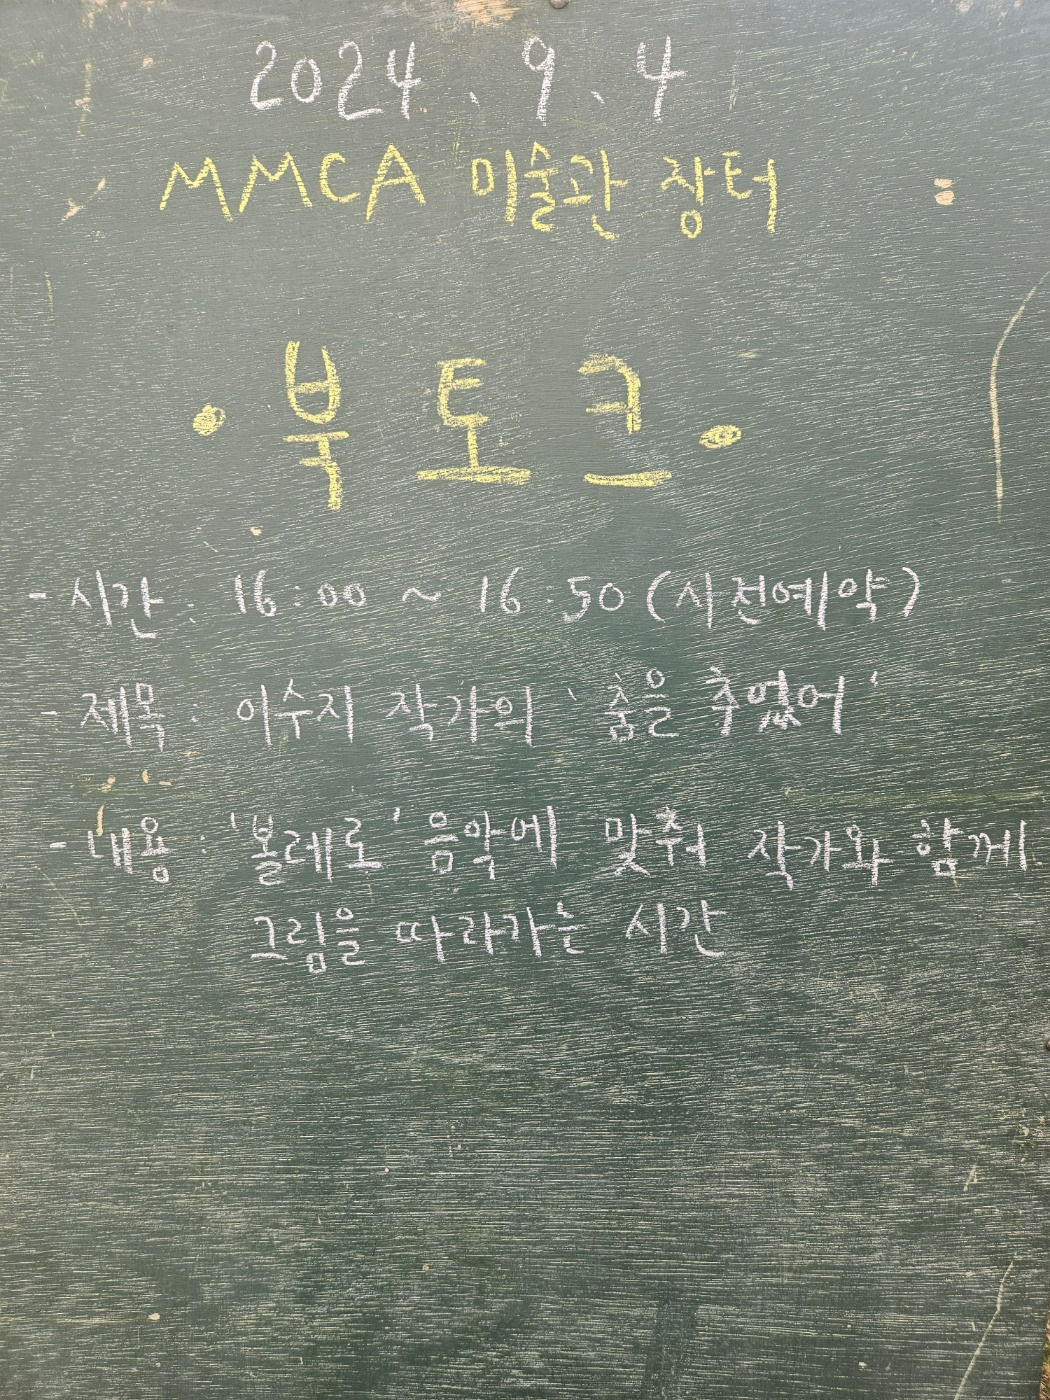 2024. 9. 4
MMCA 미술관 장터
· 북 토 크 ·
- 시간 : 16:00 ~ 16:50 (사전예약)
- 제목 : 이수지 작가의 '춤을 추었어'
- 내용 : '볼레로' 음악에 맞춰 작가와 함께
그림을 따라가는 시간